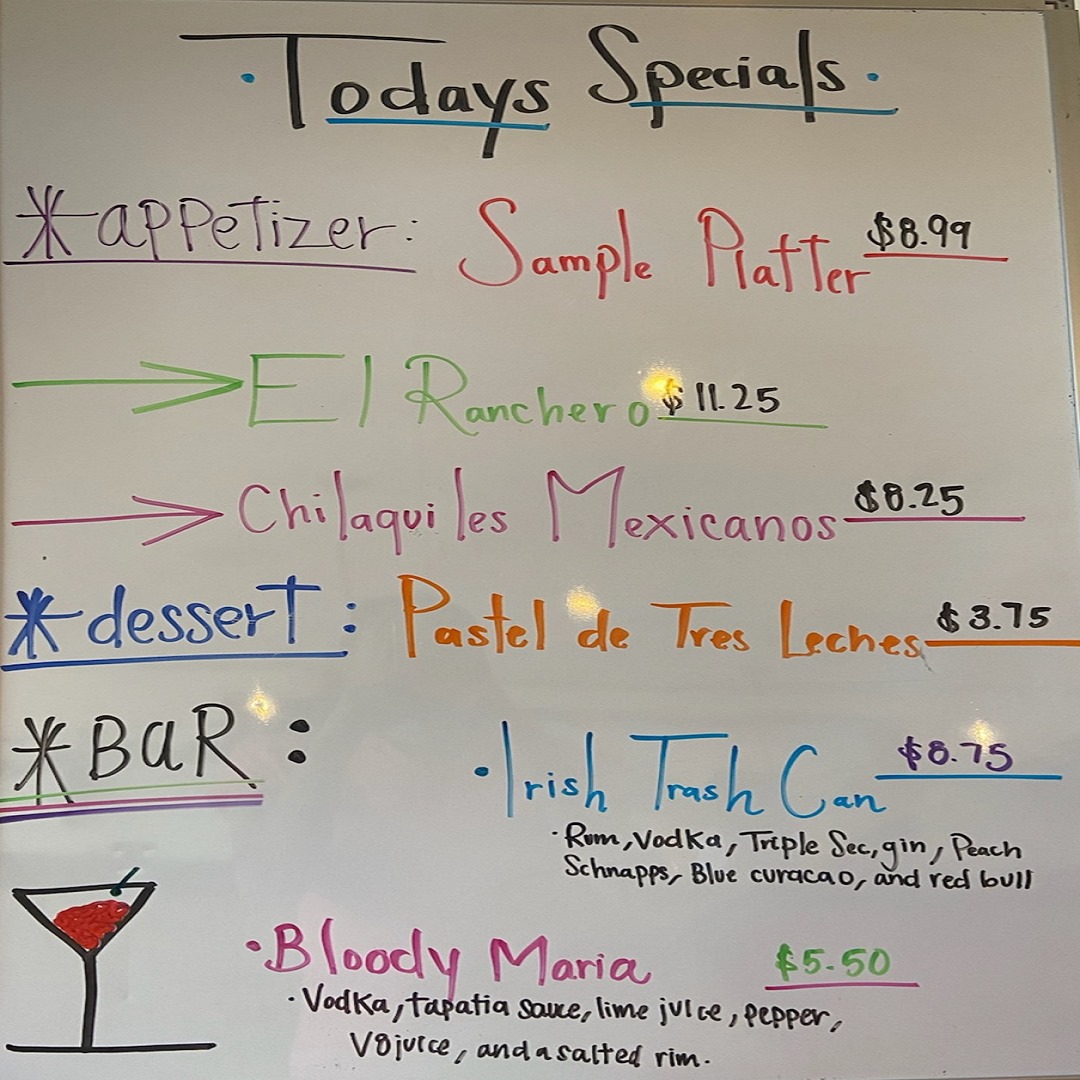 · Todays Specials ·
* appetizer: Sample Platter $8.99
→ El Ranchero $11.25
→ Chilaquiles Mexicanos $8.25
* dessert: Pastel de Tres Leches $3.75
* BaR:
· Irish Trash Can $8.75
· Rum, Vodka, Triple Sec, gin, Peach
Schnapps, Blue curacao, and red bull
· Bloody Maria $5.50
· Vodka, tapatia sauce, lime juice, pepper,
V8 juice, and a salted rim.